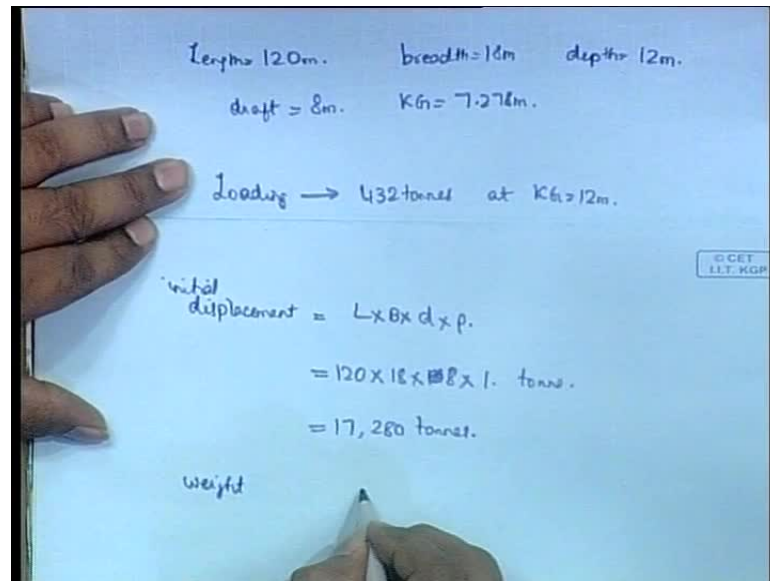 Length= 120m. breadth=18m depth= 12m.
draft = 8m. KG= 7.278m.
Loading → 432 tonnes at KG=12m.
© CET
I.I.T. KGP
initial
displacement = L×B×d×ρ.
= 120 × 18 × 8 × 1. tonne.
= 17,280 tonnes.
Weight